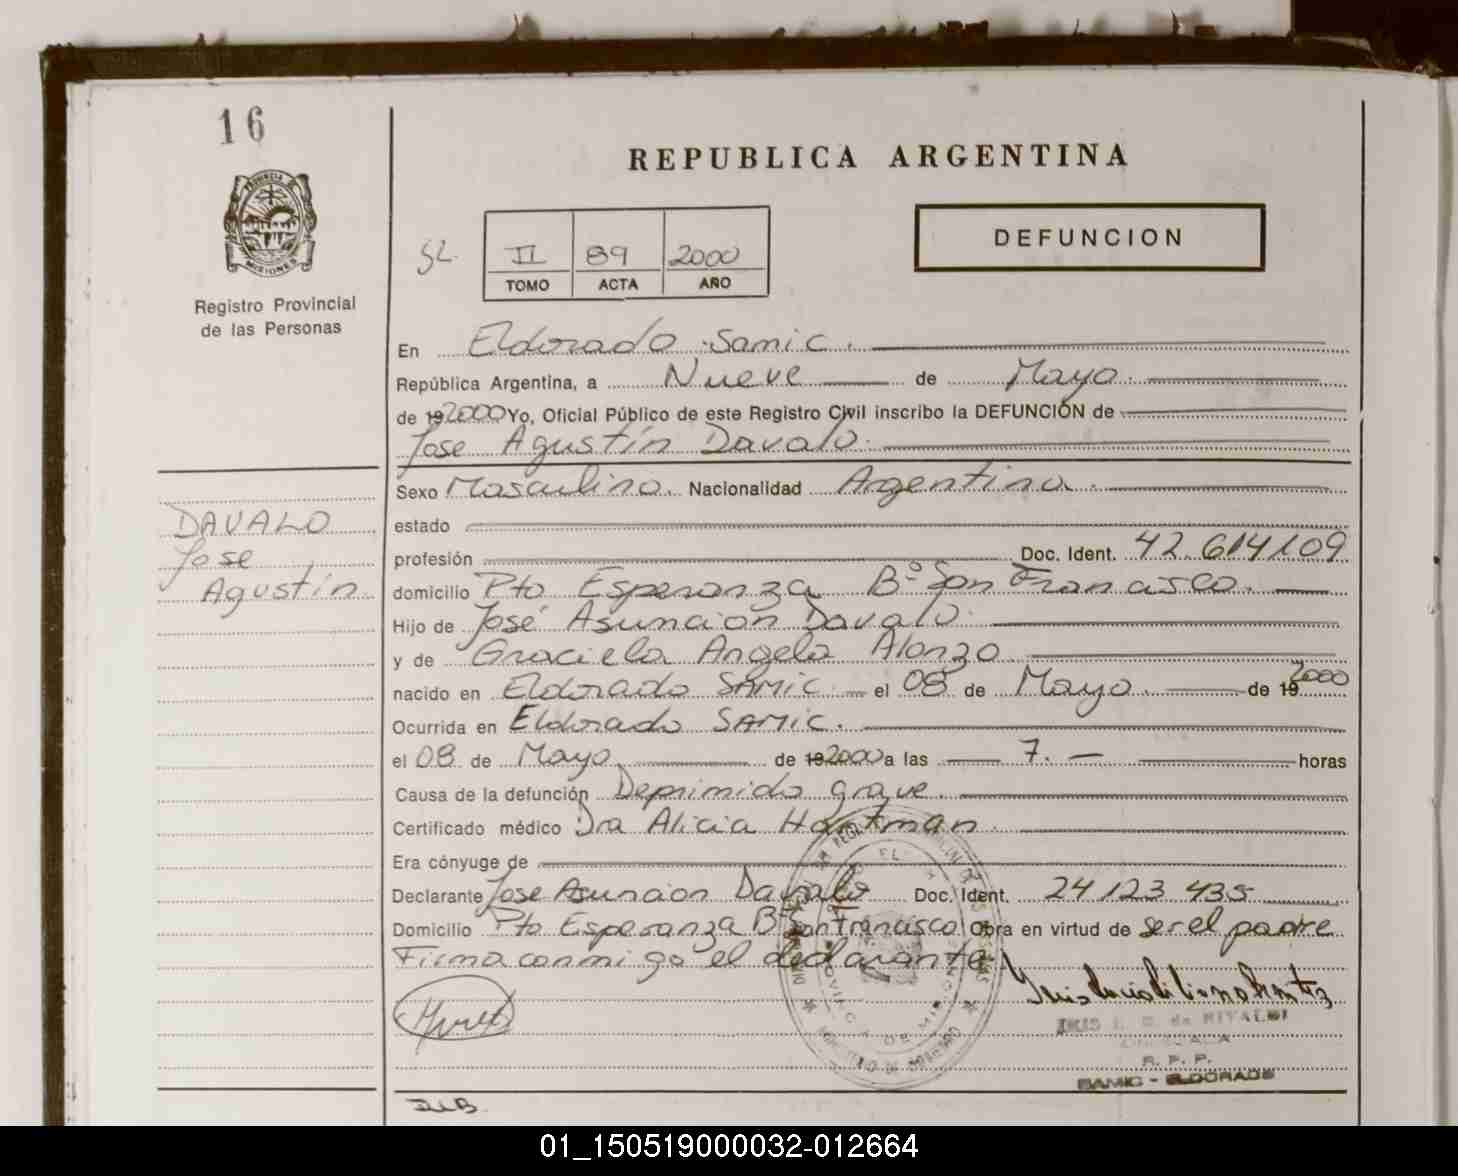 16
REPUBLICA ARGENTINA
PROVINCIA DE
MISIONES
Registro Provincial
de las Personas
II 89 2000
TOMO ACTA AÑO
DEFUNCION
En Eldorado, Samic.
República Argentina, a Nueve de Mayo.
de 192000 Yo, Oficial Público de este Registro Civil inscribo la DEFUNCIÓN de
Jose Agustín Davalo.
Sexo Masculino. Nacionalidad Argentina.
estado
profesión Doc. Ident. 42.614109
domicilio Pto Esperanza Bº San Francisco.
Hijo de José Asuncion Davalo.
y de Graciela Angela Alonzo
nacido en Eldorado SAMIC. el 08 de Mayo. de 19 2000
Ocurrida en Eldorado SAMIC.
el 08 de Mayo. de 192000 a las 7. horas
Causa de la defunción Deprimido grave.
Certificado médico Dra Alicia Hartman.
Era cónyuge de
Declarante Jose Asuncion Davalo Doc. Ident. 24123435
Domicilio Pto Esperanza Bº San Francisco Obra en virtud de ser el padre
Firma conmigo el declarante
DAVALO
Jose
Agustín
R. P. P.
SAMIC - ELDORADO
01_150519000032-012664